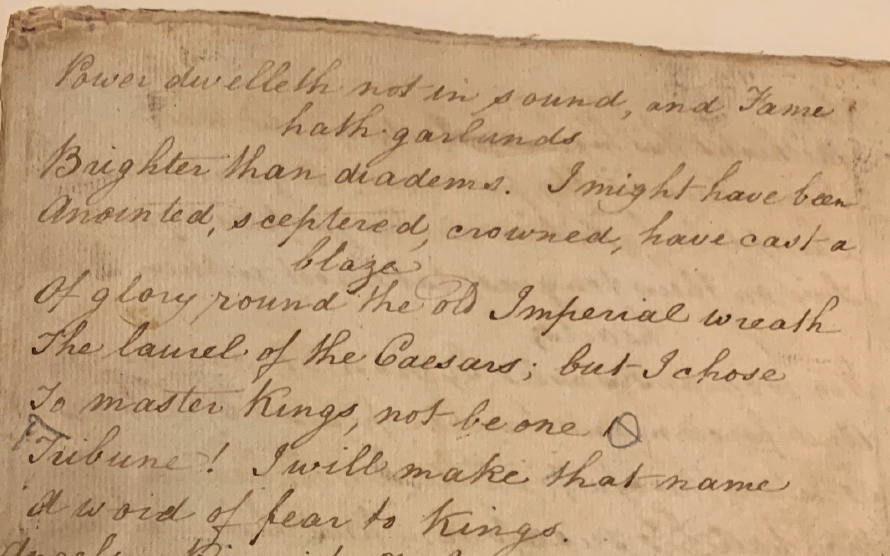 Power dwelleth not in sound, and Fame
hath garlands
Brighter than diadems. I might have been
Anointed, sceptered, crowned, have cast a
blaze
Of glory round the old Imperial wreath
The laurel of the Caesars; but I chose
To master Kings, not be one
Tribune! I will make that name
A word of fear to Kings.